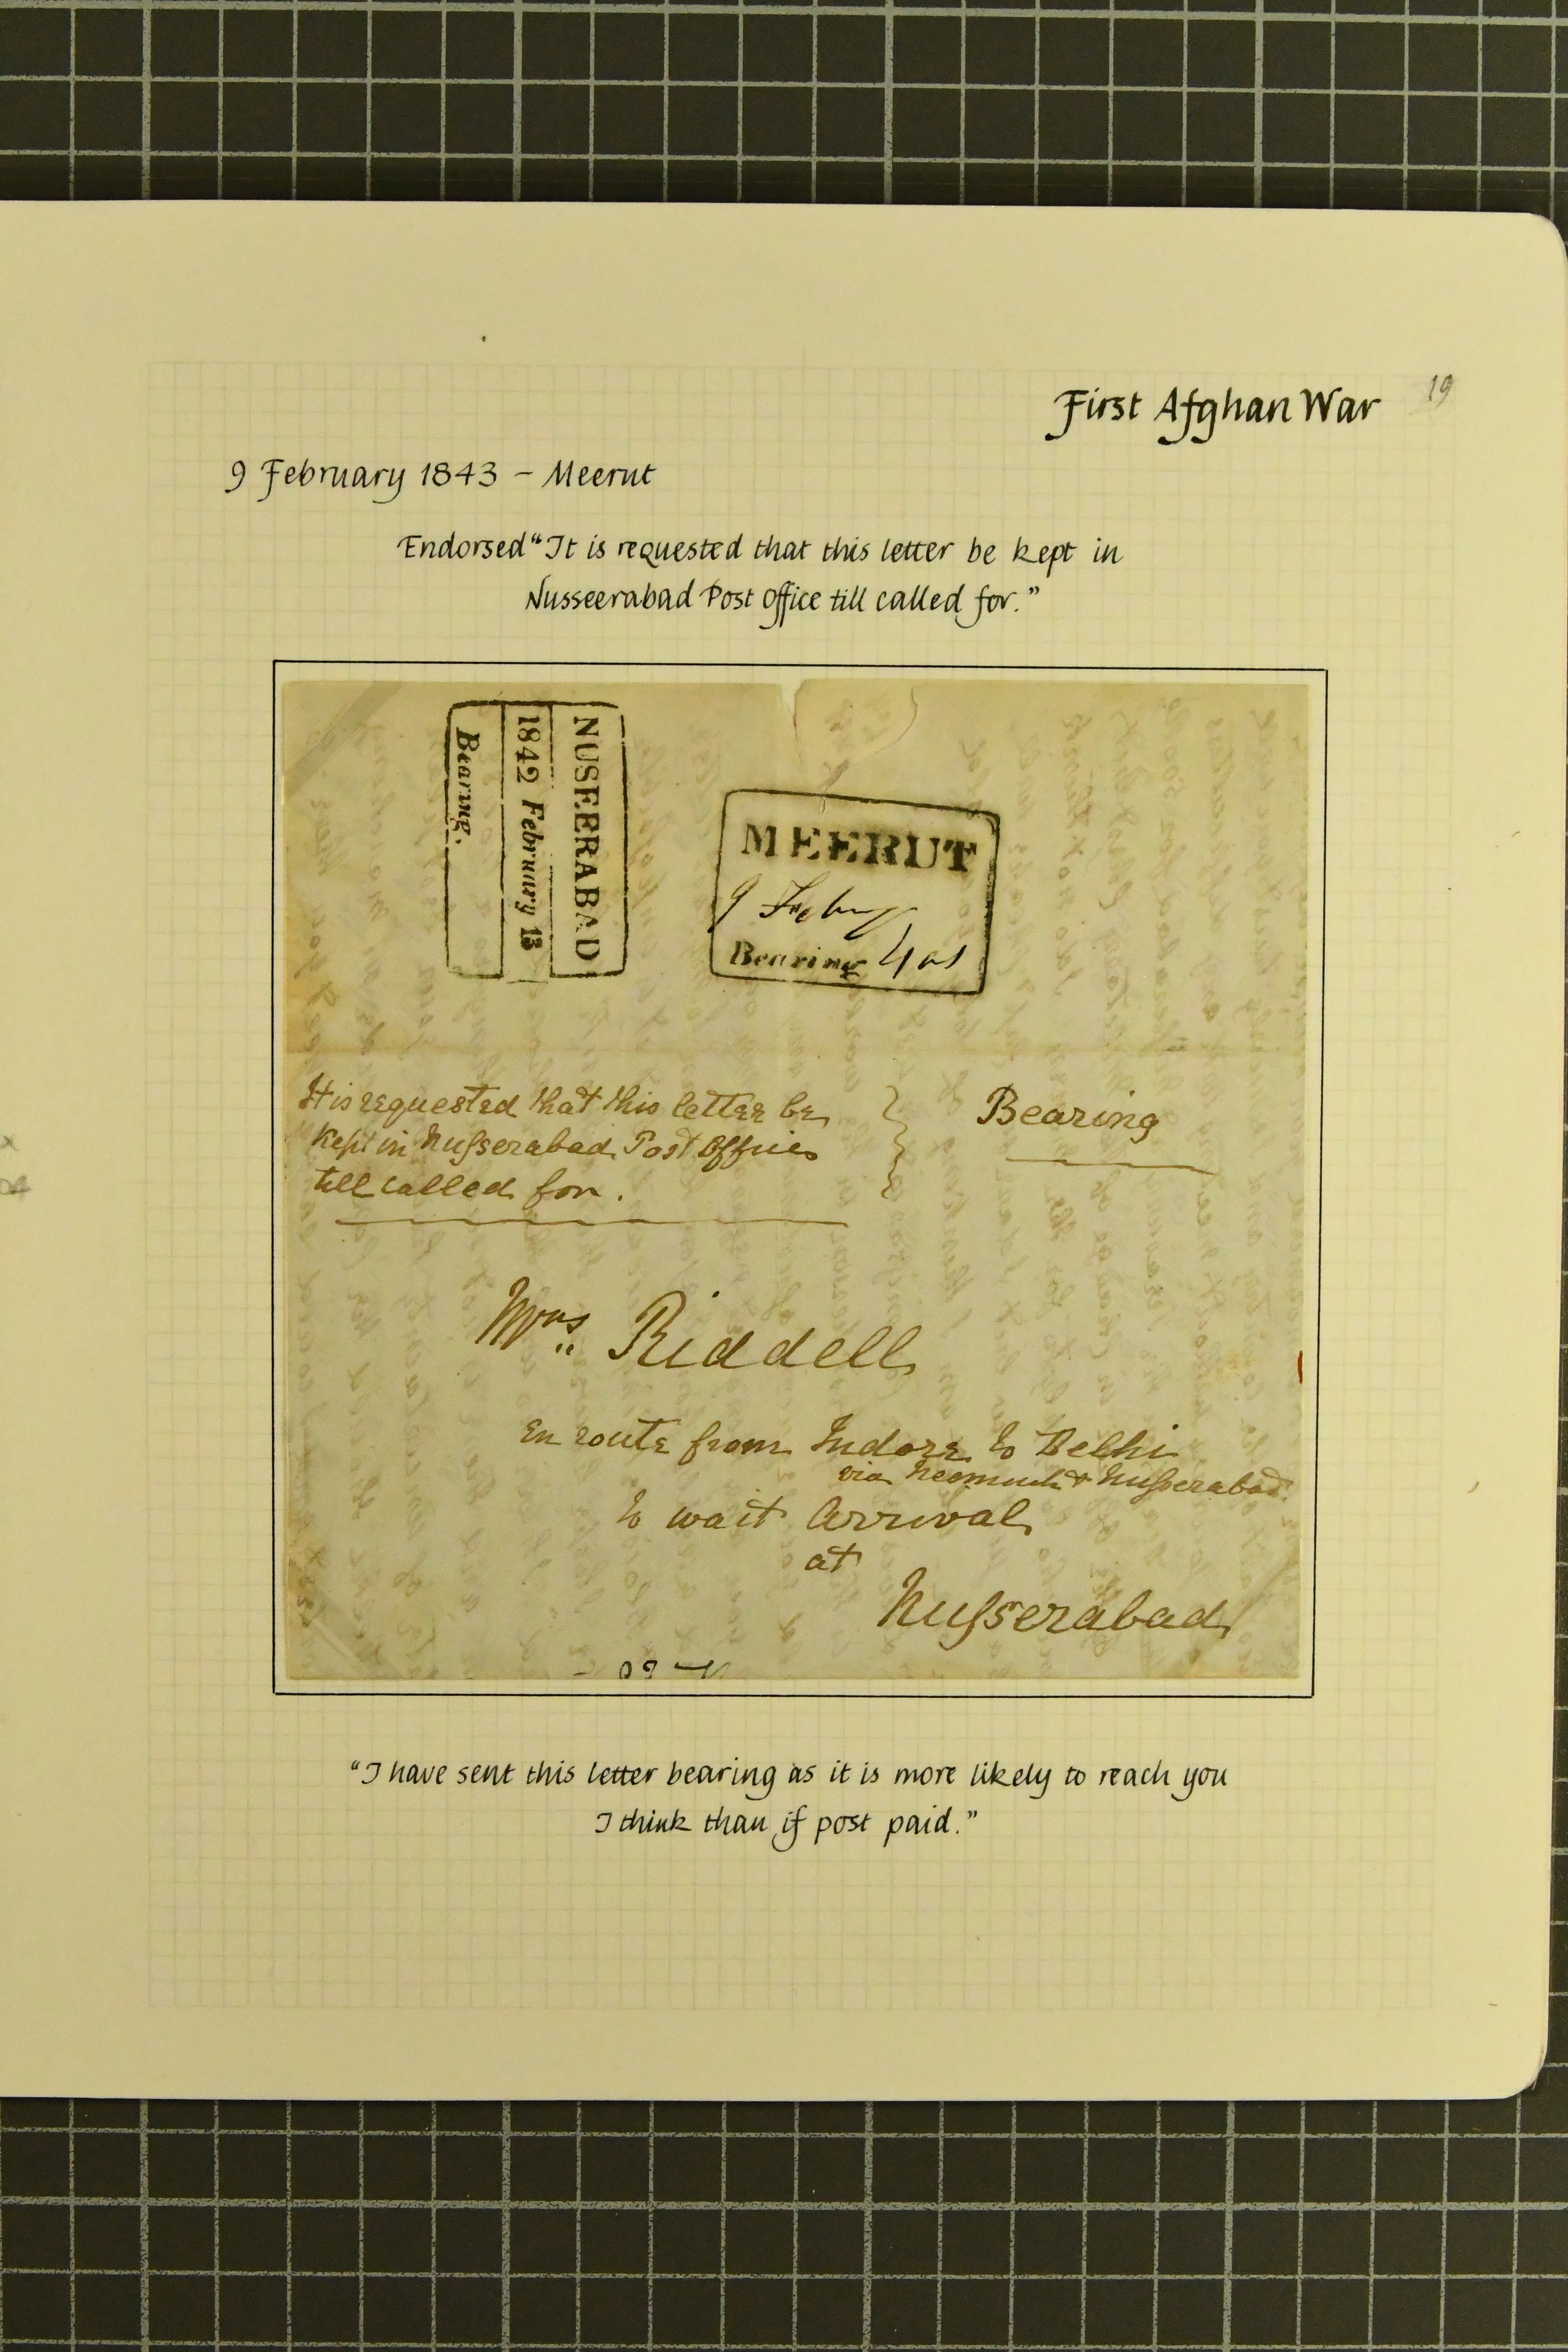 First Afghan War
19
9 February 1843 – Meerut
Endorsed “It is requested that this letter be kept in
Nusseerabad Post Office till called for.”
NUSEERABAD
1842 February 13
Bearing.
MEERUT
9 Feby
Bearing 4 as
It is requested that this letter be
kept in Nusserabad Post Office
till called for.
Bearing
Mrs. Riddell
En route from Indore to Delhi
via Neemuch & Nusserabad.
to wait arrival
at
Nusserabad
“I have sent this letter bearing as it is more likely to reach you
I think than if post paid.”